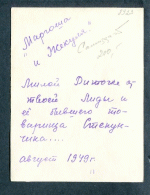 Маргоша
"и Жекуля"
Милой Диночке от
твоей Лиды и
её бывшего то-
варища Степун-
чика....
август 1949г.